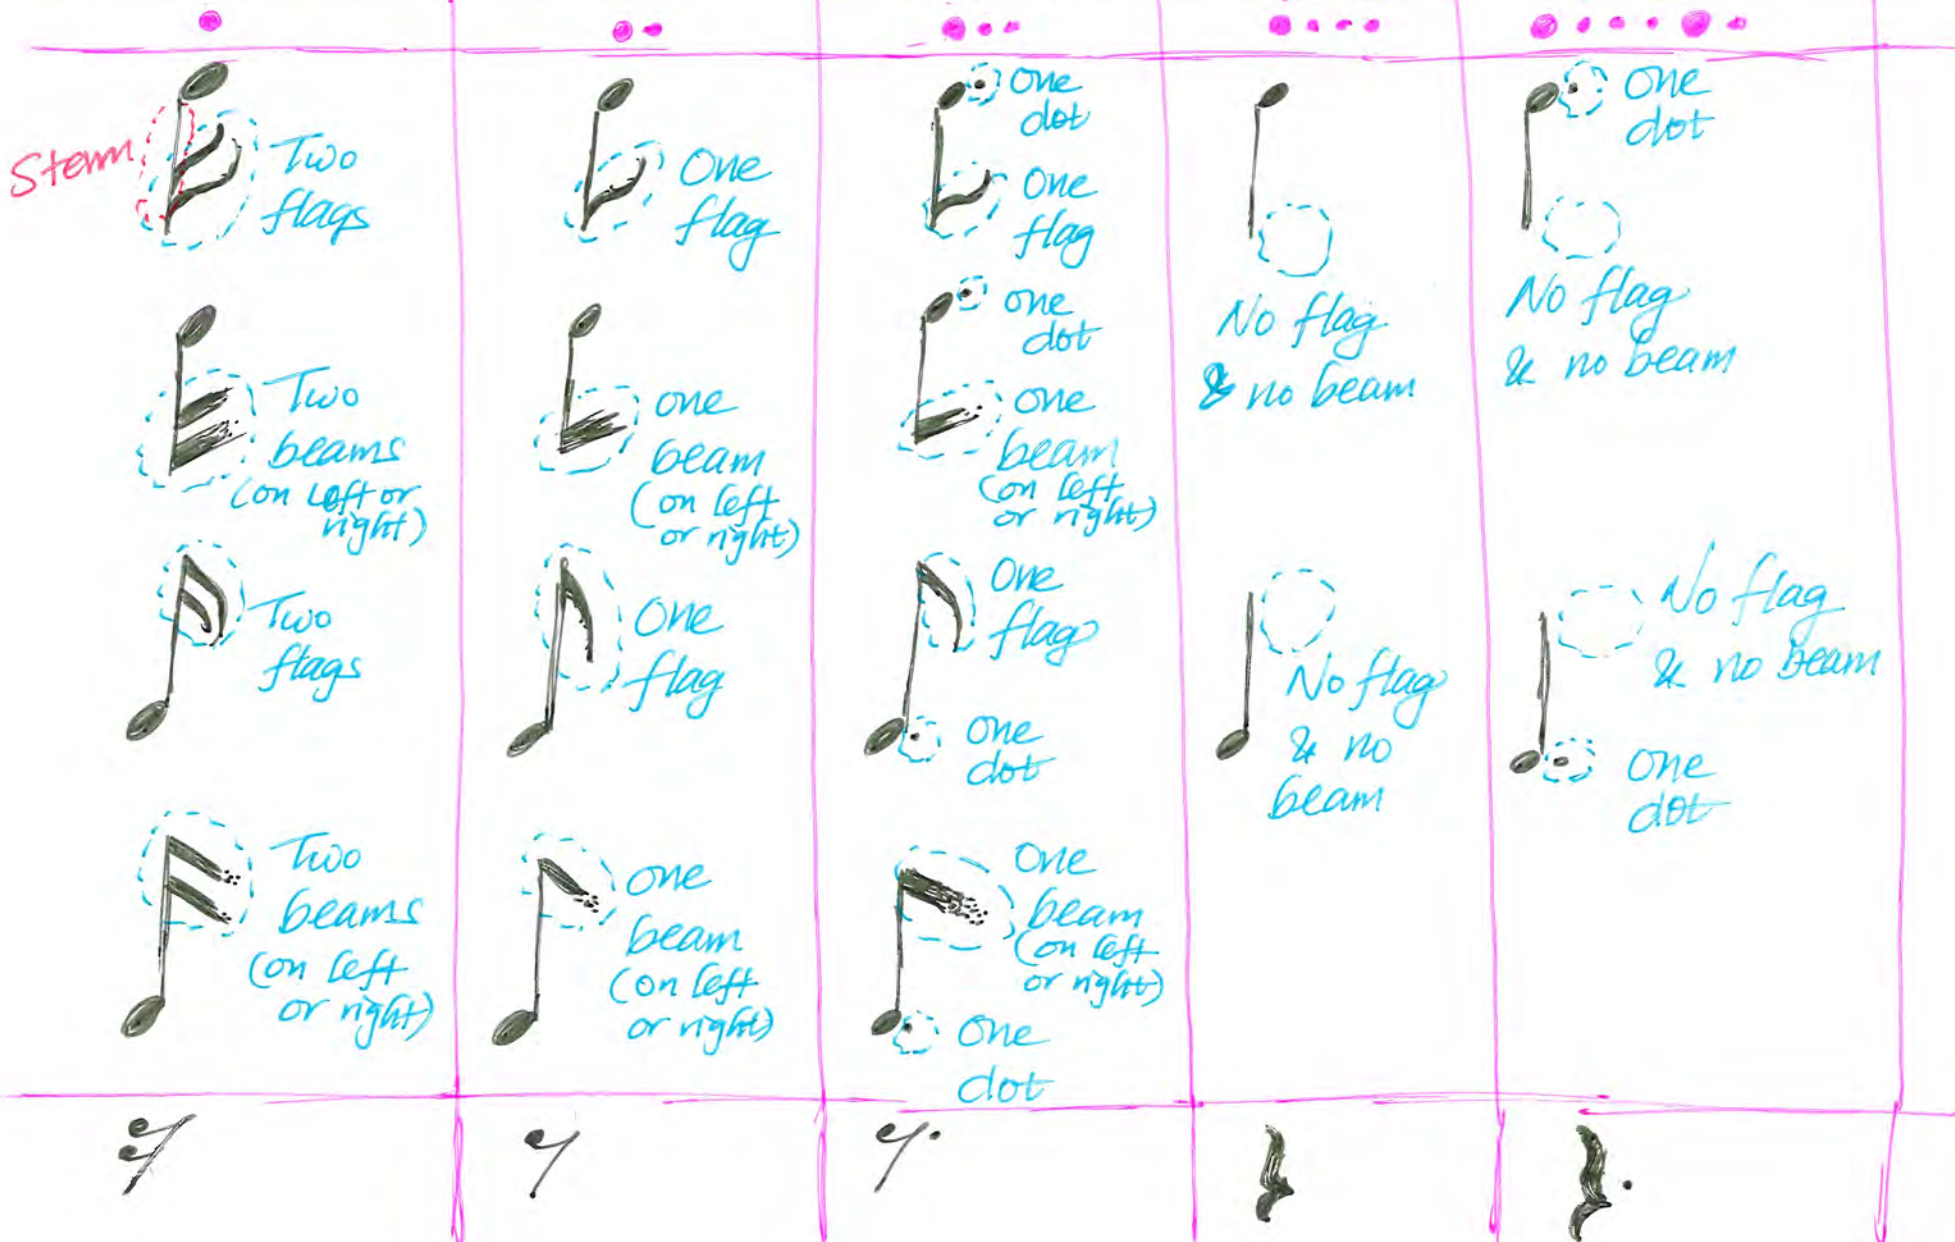 Stem
Two
flags
Two
beams
(on left or
right)
Two
flags
Two
beams
(on left
or right)
One
flag
one
beam
(on left
or right)
One
flag
one
beam
(on left
or right)
One
dot
One
flag
one
dot
one
beam
(on left
or right)
One
flag
One
dot
One
beam
(on left
or right)
One
dot
No flag
& no beam
No flag
& no
beam
One
dot
No flag
& no beam
No flag
& no beam
One
dot